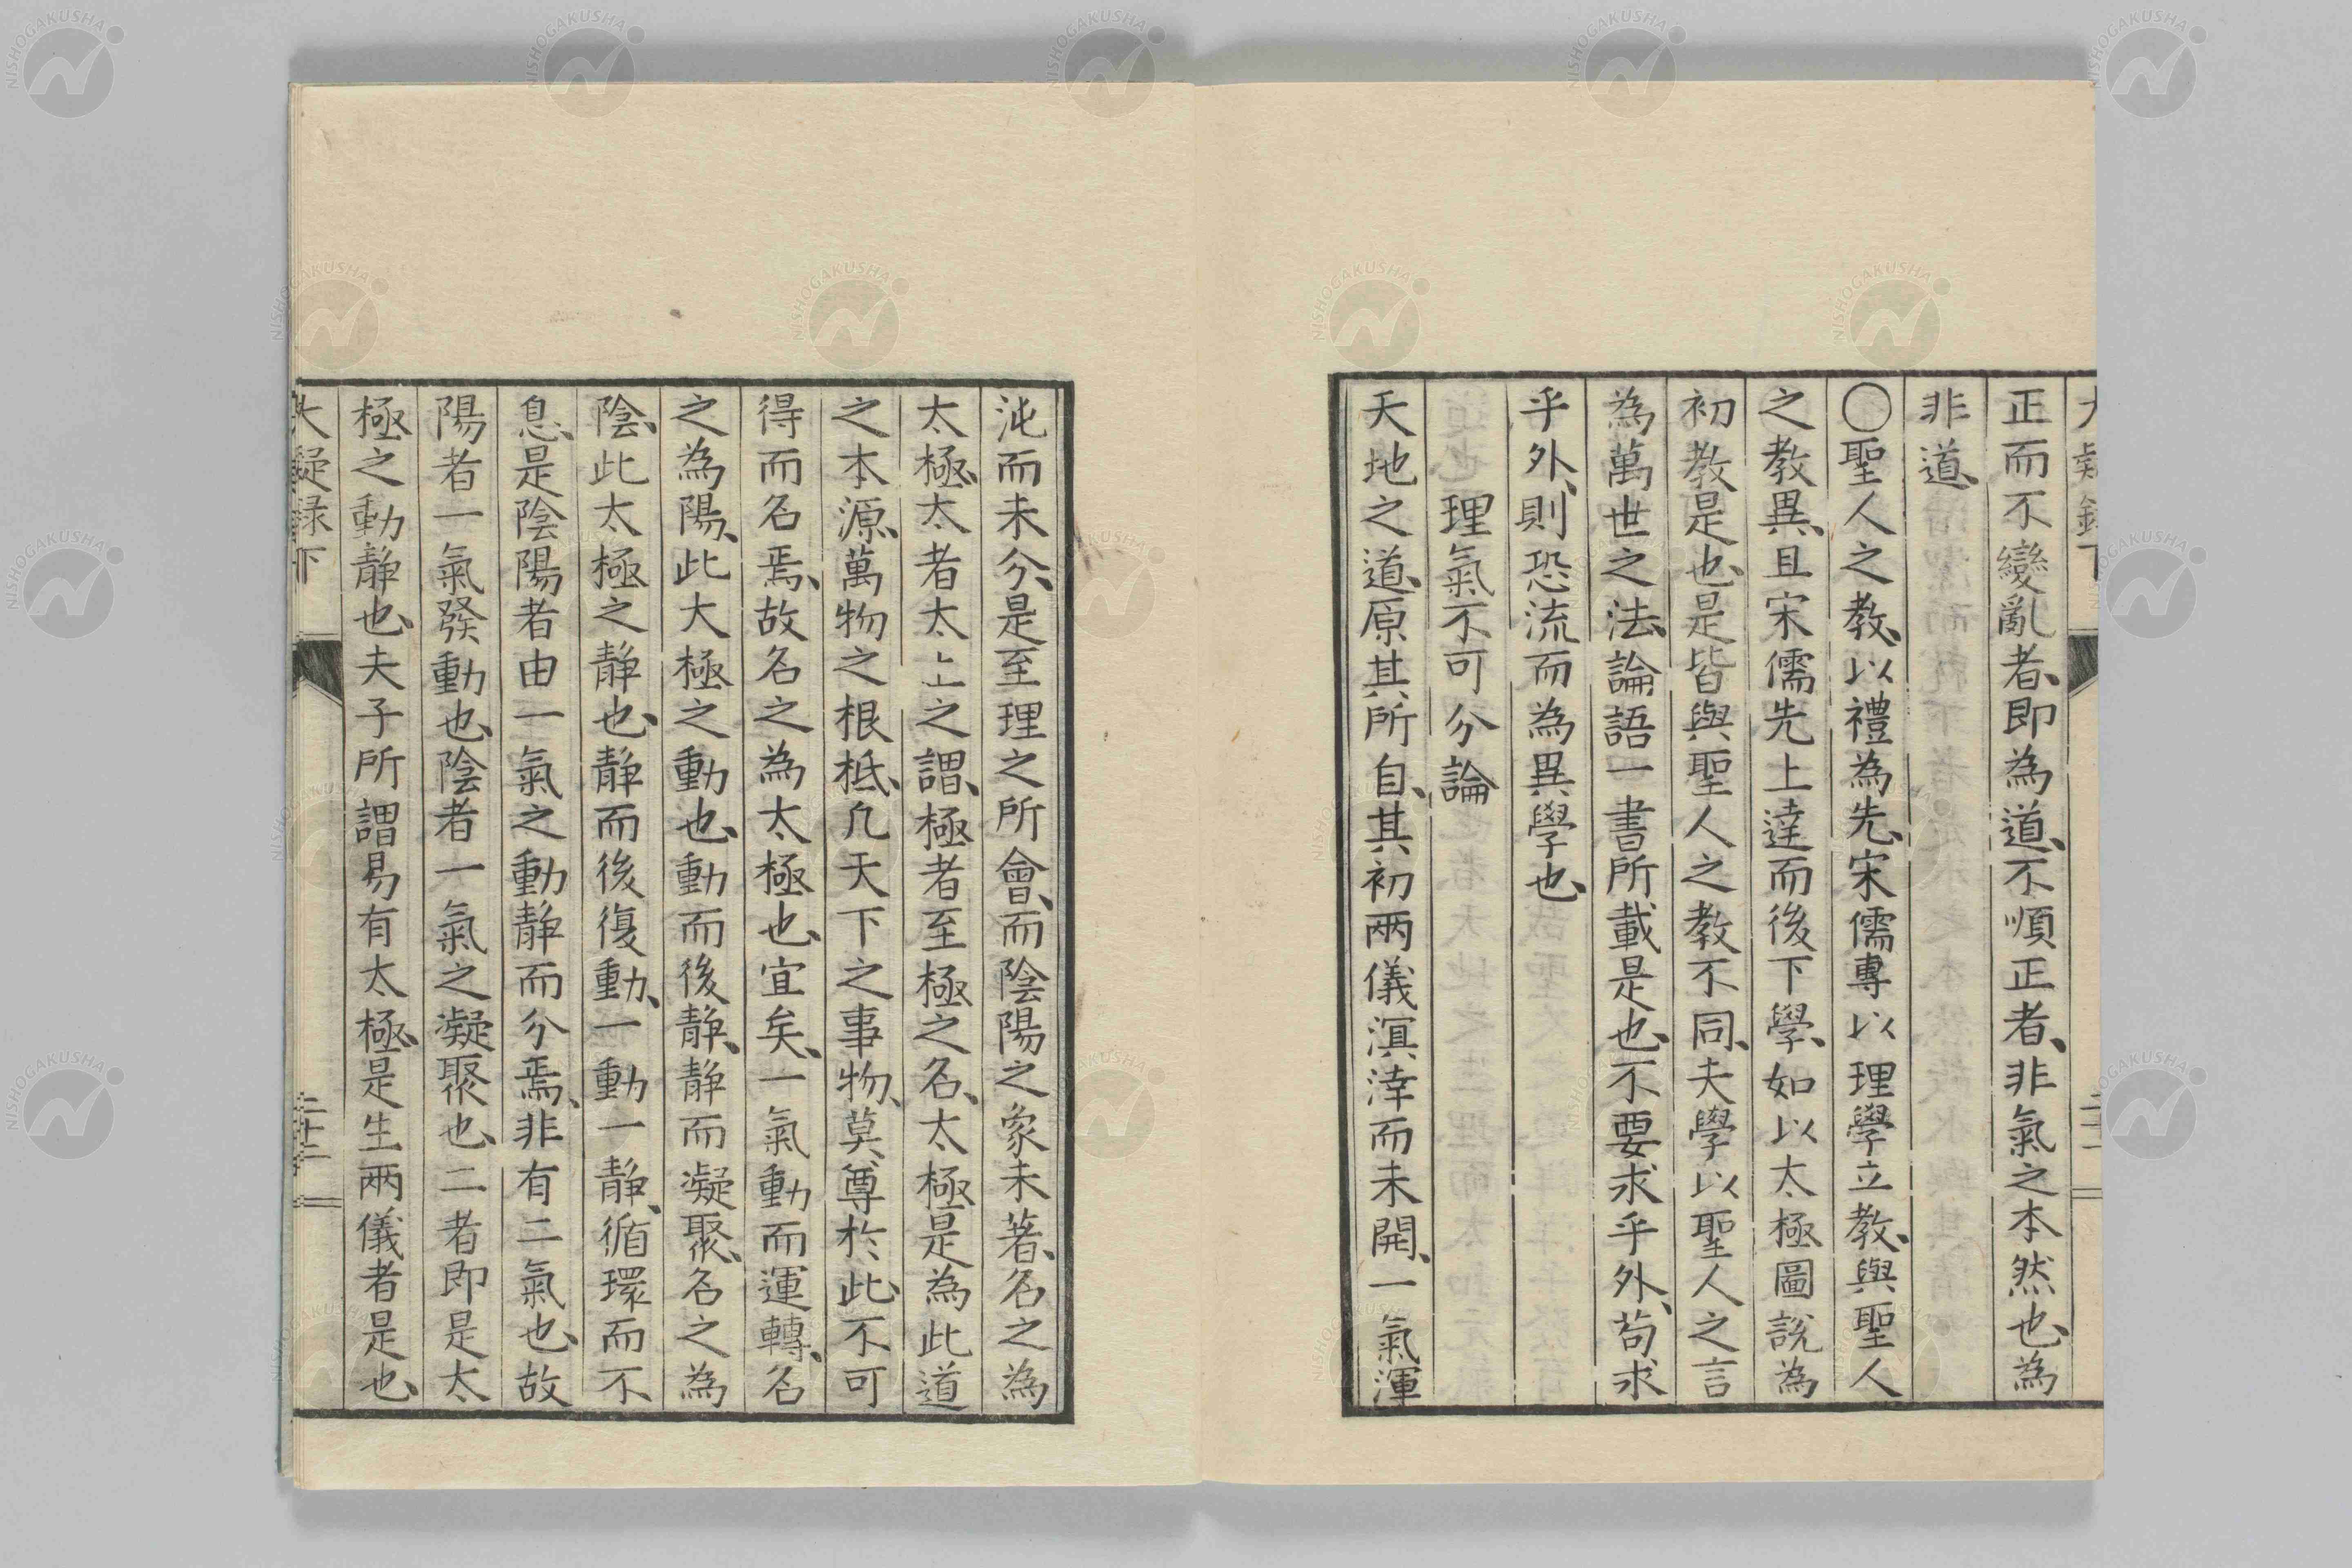 正而不變亂者、即為道、不順正者、非氣之本然也、為
非道、
〇聖人之教、以禮為先、宋儒專以理學立教、與聖人
之教異、且宋儒先上達而後下學、如以太極圖說為
初教是也、是皆與聖人之教不同、夫學以聖人之言
為萬世之法、論語一書所載是也、不要求乎外、苟求
乎外、則恐流而為異學也、
理氣不可分論
天地之道、原其所自、其初兩儀溟涬而未開、一氣渾
沌而未分、是至理之所會、而陰陽之象未著、名之為
太極、太者太上之謂、極者至極之名、太極是為此道
之本源、萬物之根柢、凡天下之事物、莫尊於此、不可
得而名焉、故名之為太極也、宜矣、一氣動而運轉、名
之為陽、此大極之動也、動而後靜、靜而凝聚、名之為
陰、此太極之靜也、靜而後復動、一動一靜、循環而不
息、是陰陽者由一氣之動靜而分焉、非有二氣也、故
陽者一氣發動也、陰者一氣之凝聚也、二者即是太
極之動靜也、夫子所謂易有太極、是生兩儀者是也、
大疑録下
二十二
NISHOGAKUSHA